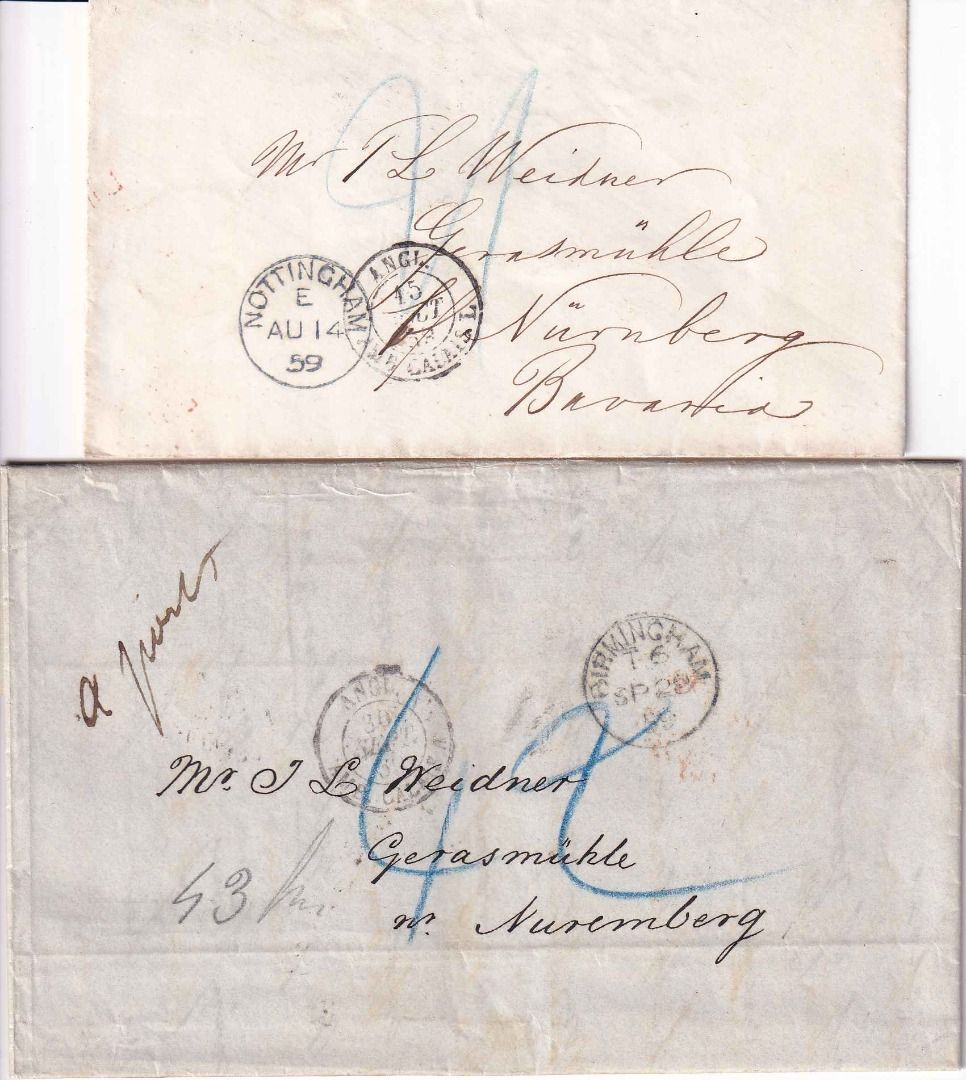 Mr T L Weidner
Gerasmühle
Nürnberg
Bavaria
NOTTINGHAM
E
AU 14
59
ANGL.
15
AMB. CALAIS
a
BIRMINGHAM
T. 6
SP 29
ANGL.
30
CALAIS
42
Mr. J L Weidner
Gerasmühle
nr. Nuremberg
43